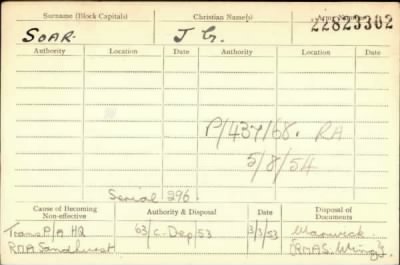 Surname (Block Capitals) Christian Name(s) Army Number
SOAR. J G. 22823302
Authority Location Date Authority Location Date
P/437/68. RA
5/8/54
Serial 296.
Cause of Becoming Non-effective Authority & Disposal Date Disposal of Documents
Trans P/A HQ 63/C. Dep/53 3/3/53 Warwick.
RMA Sandhurst (RMAS Wing)